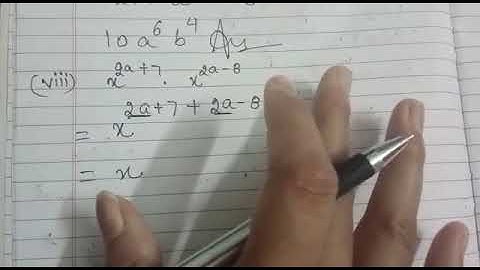 10a⁶b⁴ Ans
(viii) x^{2a+7} . x^{2a-8}
= x^{2a+7+2a-8}
= x